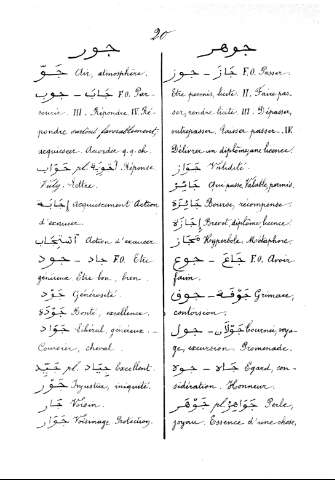 20
جور
جَوّ Air, atmosphère.
جَابَ - جوب F.O. Par-
courir. III. Répondre IV. Ré-
pondre surtout favorablement,
acquiescer. Accorder q.q.ch.
جَوَاب pl. أَجْوِبَة Réponse
Vulg. Lettre.
إِجَابَة Acquiescement Action
d'exaucer.
اسْتِجَاب Action d'exaucer
جَاد - جود F.O. Etre
généreux Etre bon, bien.
جُود Générosité.
جَوْدَة Bonté, excellence.
جَوَاد Libéral, généreux.
Coursier, cheval.
جَيِّد pl. جِيَاد Excellent.
جَوْر Injustice, iniquité.
جَار Voisin.
جِوَار Voisinage Protection.
جوهر
جَازَ - جوز F.O. Passer.
Etre permis, licité II. Faire pas-
ser, rendre licité III. Dépasser,
outrepasser. Laisser passer. IV.
Délivrer un diplôme, une licence.
جَوَاز Validité.
جَائِز Qui passe, Valable, permis.
جَائِزَة Bourse, récompense.
إِجَازَة Brevet, diplôme, licence.
مَجَاز Hyperbole. Métaphore.
جَاعَ - جوع F.O. Avoir
faim.
جَوْقَة - جوق Grimace,
contorsion.
جَوَلَان - جول Tournée, voya-
ge, excursion Promenade.
جَاه - جوه Egard, con-
sidération. Honneur.
جَوْهَر pl. جَوَاهِر Perle,
joyau. Essence d'une chose,